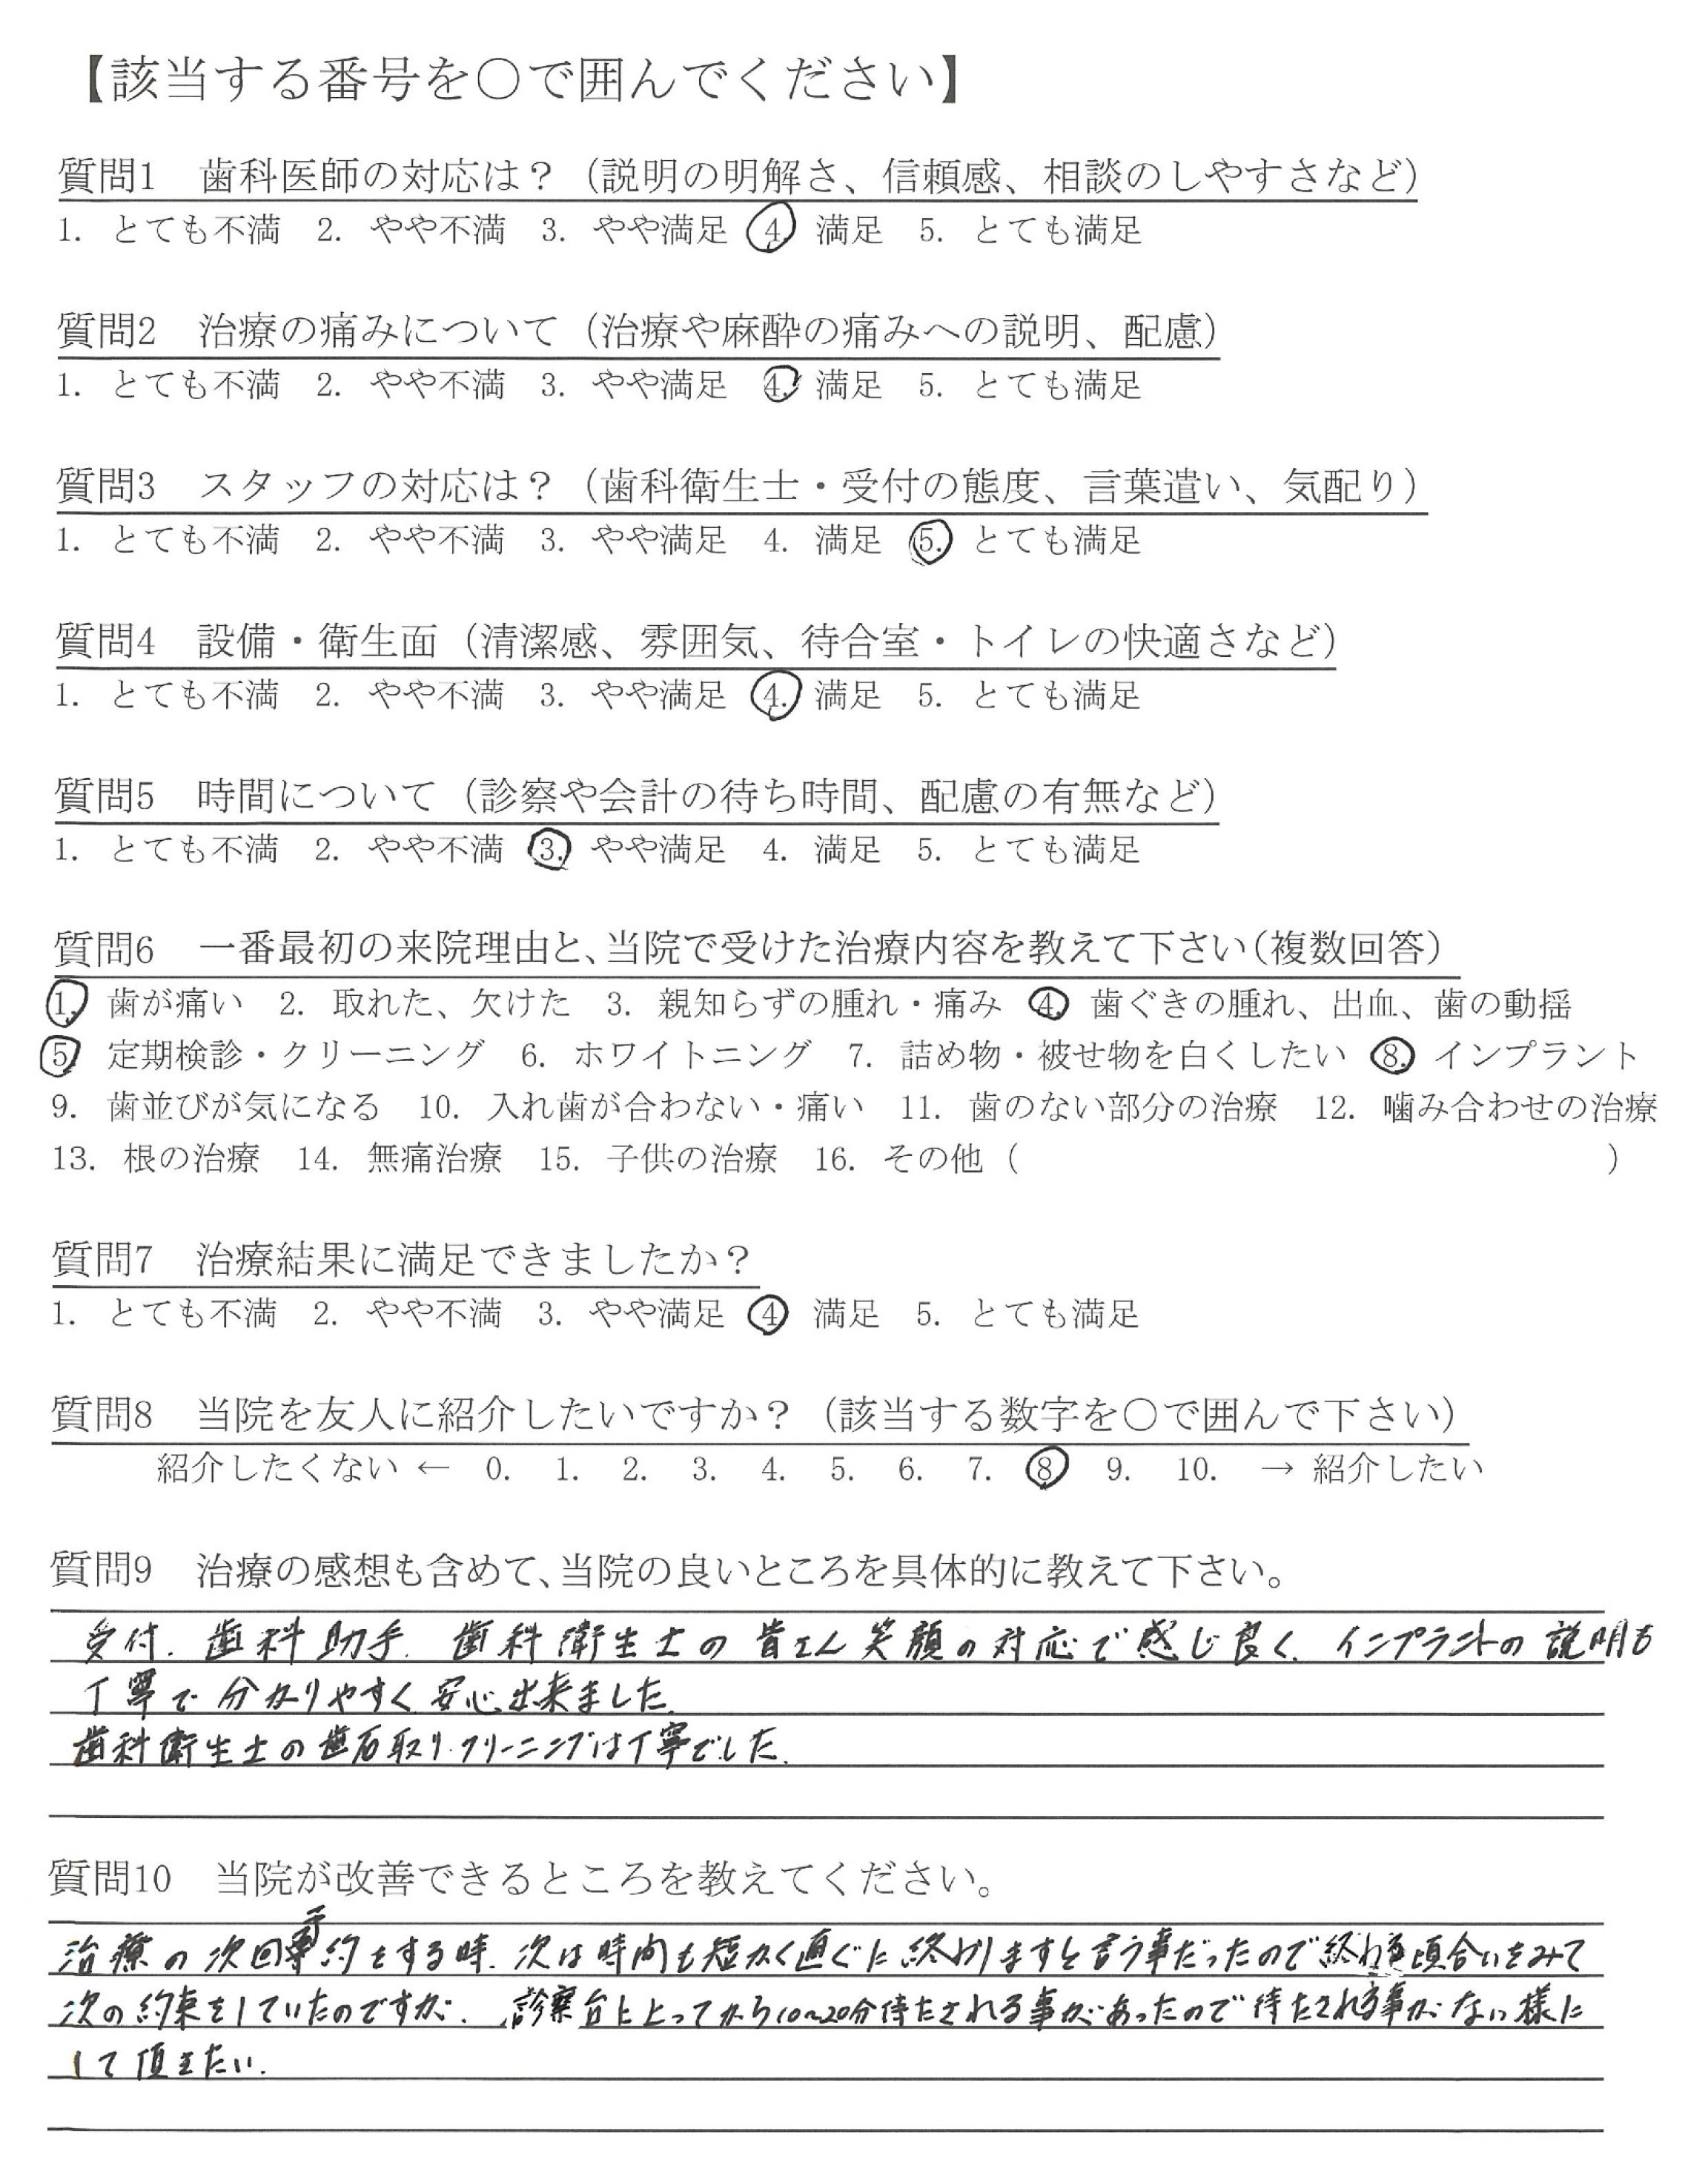 【該当する番号を○で囲んでください】
質問1　歯科医師の対応は？（説明の明解さ、信頼感、相談のしやすさなど）
1. とても不満　2. やや不満　3. やや満足　4. 満足　5. とても満足
質問2　治療の痛みについて（治療や麻酔の痛みへの説明、配慮）
1. とても不満　2. やや不満　3. やや満足　4. 満足　5. とても満足
質問3　スタッフの対応は？（歯科衛生士・受付の態度、言葉遣い、気配り）
1. とても不満　2. やや不満　3. やや満足　4. 満足　5. とても満足
質問4　設備・衛生面（清潔感、雰囲気、待合室・トイレの快適さなど）
1. とても不満　2. やや不満　3. やや満足　4. 満足　5. とても満足
質問5　時間について（診察や会計の待ち時間、配慮の有無など）
1. とても不満　2. やや不満　3. やや満足　4. 満足　5. とても満足
質問6　一番最初の来院理由と、当院で受けた治療内容を教えて下さい（複数回答）
1. 歯が痛い　2. 取れた、欠けた　3. 親知らずの腫れ・痛み　4. 歯ぐきの腫れ、出血、歯の動揺
5. 定期検診・クリーニング　6. ホワイトニング　7. 詰め物・被せ物を白くしたい　8. インプラント
9. 歯並びが気になる　10. 入れ歯が合わない・痛い　11. 歯のない部分の治療　12. 噛み合わせの治療
13. 根の治療　14. 無痛治療　15. 子供の治療　16. その他（　　　　　）
質問7　治療結果に満足できましたか？
1. とても不満　2. やや不満　3. やや満足　4. 満足　5. とても満足
質問8　当院を友人に紹介したいですか？（該当する数字を○で囲んで下さい）
紹介したくない ← 0. 1. 2. 3. 4. 5. 6. 7. 8. 9. 10. → 紹介したい
質問9　治療の感想も含めて、当院の良いところを具体的に教えて下さい。
受付. 歯科助手. 歯科衛生士の皆さん笑顔の対応で感じ良く. インプラントの説明も
丁寧で分かりやすく安心出来ました.
歯科衛生士の歯石取り.クリーニングは丁寧でした.
質問10　当院が改善できるところを教えてください。
治療の次回予約をする時. 次は時間も短かく直ぐに終わりますと言う事だったので終わる頃合いをみて
次の約束をしていたのですが. 診察台に上ってから10~20分待たされる事があったので待たされる事がない様に
して頂きたい.